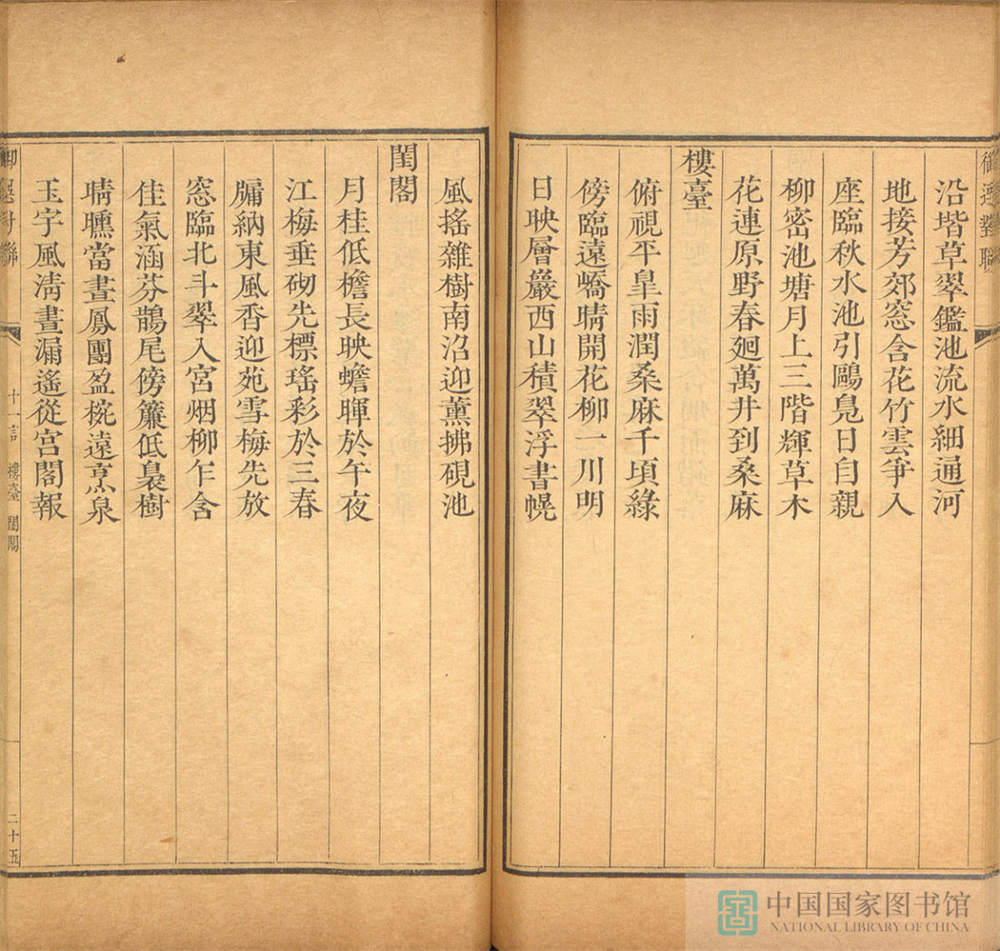 御選對聯
沿堦草翠鑑池流水細通河
地接芳郊窓含花竹雲爭入
座臨秋水池引鷗鳧日自親
柳密池塘月上三階輝草木
花連原野春廻萬井到桑麻
樓臺
俯視平皐雨潤桑麻千頃綠
傍臨遠嶠晴開花柳一川明
日映層巖西山積翠浮書幌
風搖雜樹南沼迎薰拂硯池
閨閣
月桂低檐長映蟾暉於午夜
江梅垂砌先標瑤彩於三春
牖納東風香迎苑雪梅先放
窓臨北斗翠入宮烟柳乍含
佳氣涵芬鵲尾傍簾低裊樹
晴曛當晝鳳團盈椀遠烹泉
玉宇風淸晝漏遙從宮閣報
御選對聯
十一言 樓臺 閨閣
二十五
中国国家图书馆
NATIONAL LIBRARY OF CHINA